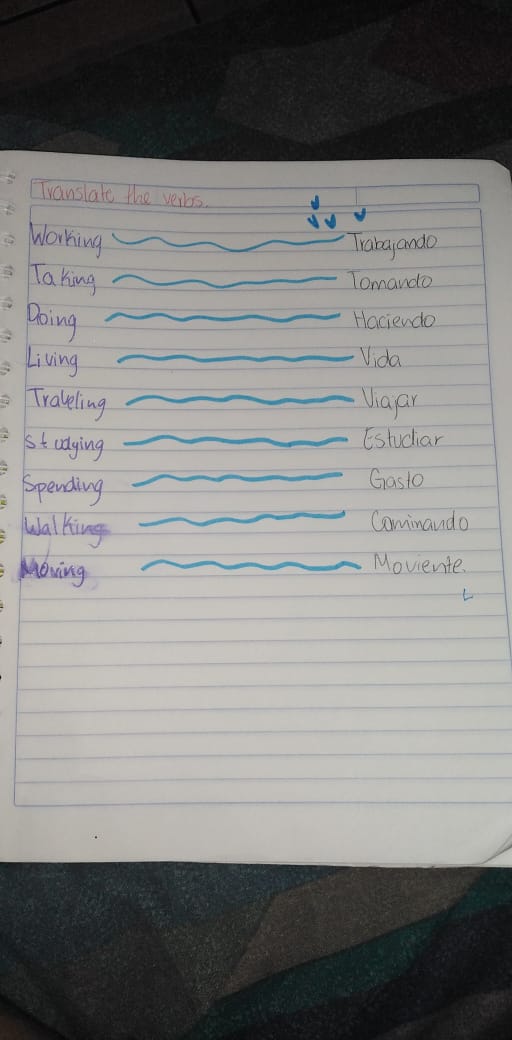 Translate the verbs.
Working Trabajando
Taking Tomando
Doing Haciendo
Living Vida
Traveling Viajar
Studying Estudiar
Spending Gasto
Walking Caminando
Moving Moviente.